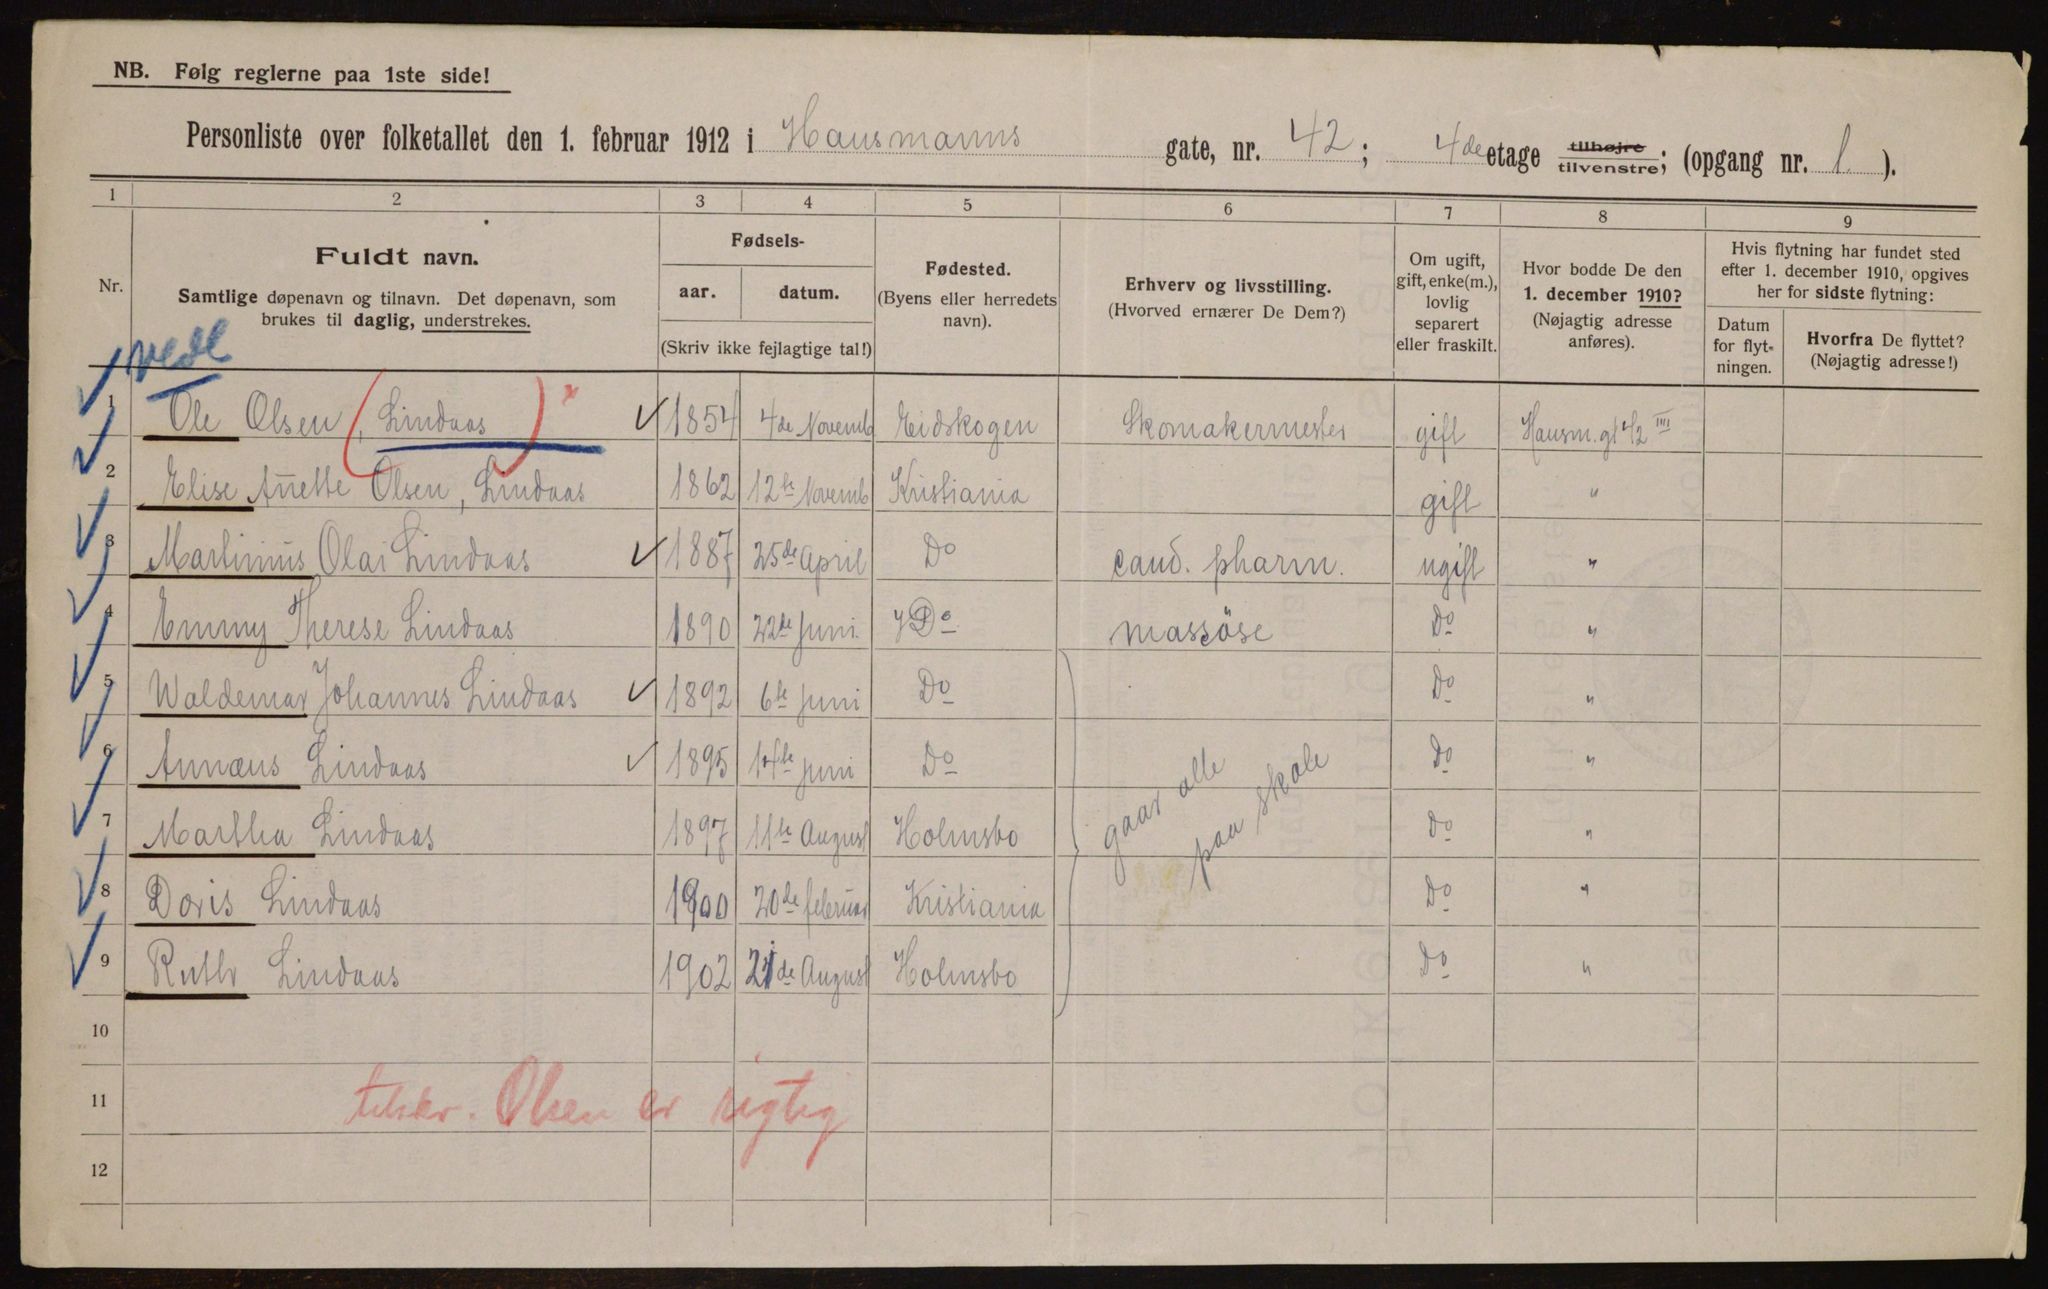 NB. Følg reglerne paa 1ste side!
Personliste over folketallet den 1. februar 1912 i Hausmanns gate, nr. 42; 4de etage tilhøjre tilvenstre; (opgang nr. 1.).
1 2 3 4 5 6 7 8 9
Nr.
Fuldt navn.
Samtlige døpenavn og tilnavn. Det døpenavn, som
brukes til daglig, understrekes.
Fødsels-
aar. datum.
(Skriv ikke fejlagtige tal!)
Fødested.
(Byens eller herredets
navn).
Erhverv og livsstilling.
(Hvorved ernærer De Dem?)
Om ugift,
gift, enke(m.),
lovlig
separert
eller fraskilt.
Hvor bodde De den
1. december 1910?
(Nøjagtig adresse
anføres).
Hvis flytning har fundet sted
efter 1. december 1910, opgives
her for sidste flytning:
Datum
for flyt-
ningen.
Hvorfra De flyttet?
(Nøjagtig adresse!)
1 Ole Olsen (, Lindaas) 1854 4de Novemb Eidskogen Skomakermester gift Hausm. gt 42 IIII
2 Elise Anette Olsen, Lindaas 1862 12te Novemb Kristiania gift "
3 Martinius Olai Lindaas 1887 25de April Do cand. pharm. ugift "
4 Emmy Therese Lindaas 1890 22de Juni Do massöse Do "
5 Waldemar Johannes Lindaas 1892 6te Juni Do Do "
6 Annæus Lindaas 1895 14te Juni Do Do "
gaar alle
paa skole
7 Martha Lindaas 1897 11te August Holmsbo Do "
8 Doris Lindaas 1900 20de februar Kristiania Do "
9 Ruth Lindaas 1902 21de August Holmsbo Do "
10
11 Olsen er rigtig
12